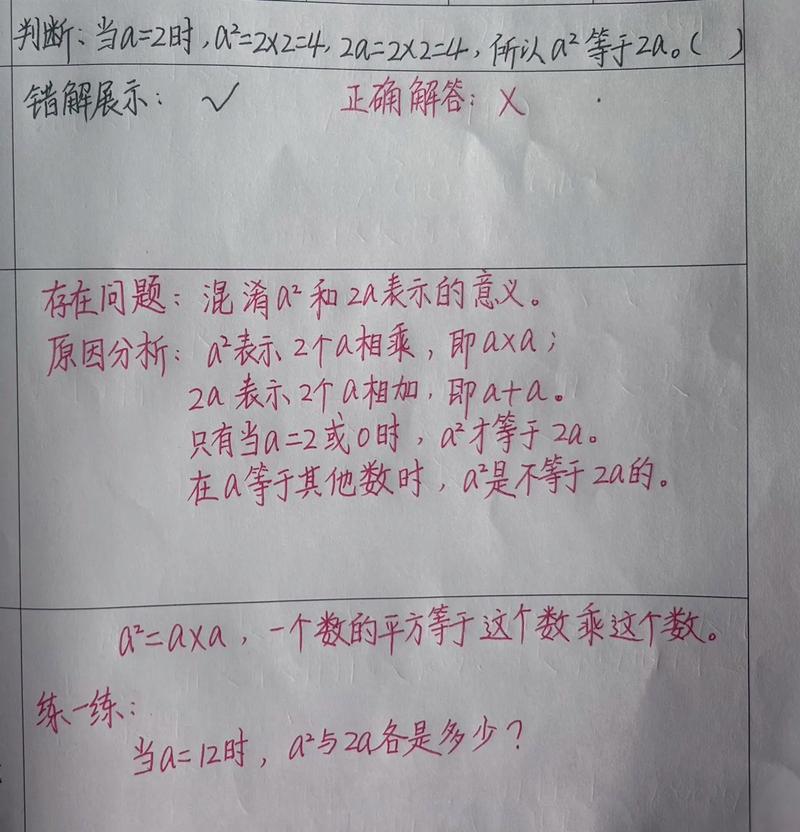 判断：当a=2时，a²=2×2=4，2a=2×2=4，所以a²等于2a。（ ）
错解展示：✓ 正确解答：×
存在问题：混淆a²和2a表示的意义。
原因分析：a²表示2个a相乘，即a×a；
2a表示2个a相加，即a+a。
只有当a=2或0时，a²才等于2a。
在a等于其他数时，a²是不等于2a的。
a²=a×a，一个数的平方等于这个数乘这个数。
练一练：
当a=12时，a²与2a各是多少？